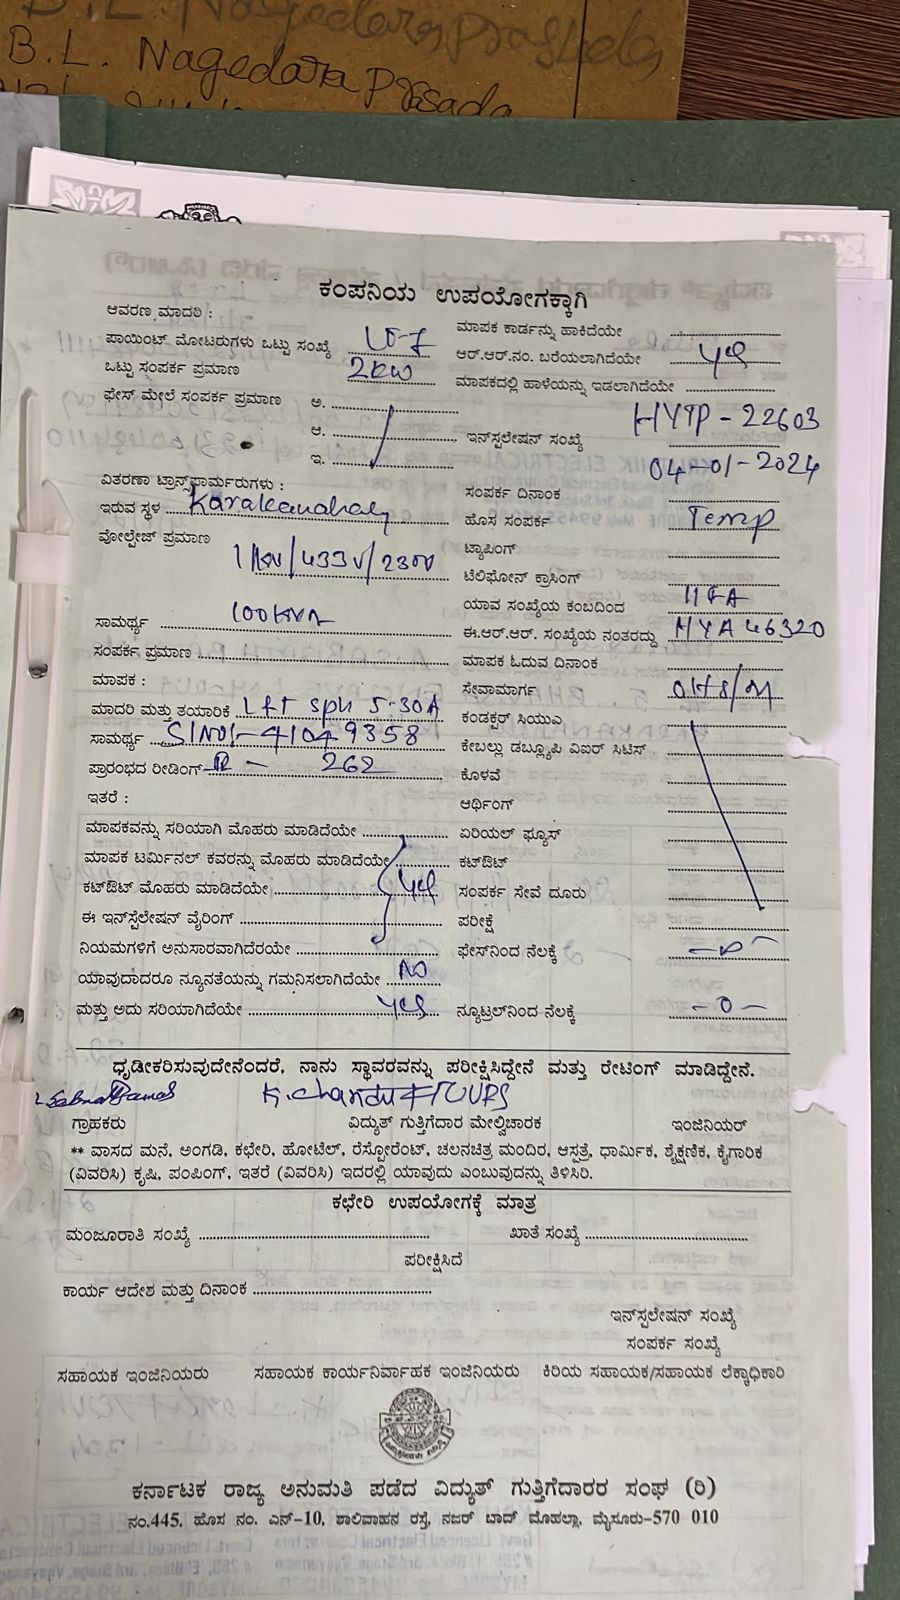 B.L. Nagedara Prasada
B.L. Nagedara Prasada
ಕಂಪನಿಯ ಉಪಯೋಗಕ್ಕಾಗಿ
ಆವರಣ ಮಾದರಿ :
ಮಾಪಕ ಕಾರ್ಡನ್ನು ಹಾಕಿದೆಯೇ
ಪಾಯಿಂಟ್ ಮೋಟರುಗಳು ಒಟ್ಟು ಸಂಖ್ಯೆ LT-7
ಆರ್.ಆರ್.ನಂ. ಬರೆಯಲಾಗಿದೆಯೇ yes
ಒಟ್ಟು ಸಂಪರ್ಕ ಪ್ರಮಾಣ 2kw
ಮಾಪಕದಲ್ಲಿ ಹಾಳೆಯನ್ನು ಇಡಲಾಗಿದೆಯೇ
ಫೇಸ್ ಮೇಲೆ ಸಂಪರ್ಕ ಪ್ರಮಾಣ ಅ.
HYTP - 22603
ಆ.
ಇನ್‌ಸ್ಟಲೇಷನ್ ಸಂಖ್ಯೆ
ಇ.
04-01-2024
ವಿತರಣಾ ಟ್ರಾನ್ಸ್‌ಫಾರ್ಮರುಗಳು :
ಸಂಪರ್ಕ ದಿನಾಂಕ
ಇರುವ ಸ್ಥಳ
ಹೊಸ ಸಂಪರ್ಕ Temp
ವೋಲ್ಟೇಜ್ ಪ್ರಮಾಣ 11kv/433v/230v
ಟ್ಯಾಪಿಂಗ್
ಟೆಲಿಫೋನ್ ಕ್ರಾಸಿಂಗ್
ಯಾವ ಸಂಖ್ಯೆಯ ಕಂಬದಿಂದ
ಸಾಮರ್ಥ್ಯ 100KVA
ಈ.ಆರ್.ಆರ್. ಸಂಖ್ಯೆಯ ನಂತರದ್ದು HYA 46320
ಸಂಪರ್ಕ ಪ್ರಮಾಣ
ಮಾಪಕ ಓದುವ ದಿನಾಂಕ
ಮಾಪಕ :
ಸೇವಾಮಾರ್ಗ OH S/M
ಮಾದರಿ ಮತ್ತು ತಯಾರಿಕೆ L&T sph 5-30A
ಕಂಡಕ್ಟರ್ ಸಿಯುಎ
ಸಾಮರ್ಥ್ಯ Sl No:- 41049358
ಕೇಬಲ್ಲು ಡಬ್ಲ್ಯೂಪಿ ವಿಐರ್ ಸಿಟಿಸ್
ಪ್ರಾರಂಭದ ರೀಡಿಂಗ್ R - 262
ಕೊಳವೆ
ಇತರೆ :
ಆರ್ಥಿಂಗ್
ಮಾಪಕವನ್ನು ಸರಿಯಾಗಿ ಮೊಹರು ಮಾಡಿದೆಯೇ
ಏರಿಯಲ್ ಫ್ಯೂಸ್
ಮಾಪಕ ಟರ್ಮಿನಲ್ ಕವರನ್ನು ಮೊಹರು ಮಾಡಿದೆಯೇ
ಕಟ್‌ಔಟ್
ಕಟ್‌ಔಟ್ ಮೊಹರು ಮಾಡಿದೆಯೇ yes
ಸಂಪರ್ಕ ಸೇವೆ ದೂರು
ಈ ಇನ್‌ಸ್ಟಲೇಷನ್ ವೈರಿಂಗ್
ಪರೀಕ್ಷೆ
ನಿಯಮಗಳಿಗೆ ಅನುಸಾರವಾಗಿದೆರಯೇ
ಫೇಸ್‌ನಿಂದ ನೆಲಕ್ಕೆ - 0 -
ಯಾವುದಾದರೂ ನ್ಯೂನತೆಯನ್ನು ಗಮನಿಸಲಾಗಿದೆಯೇ No
ಮತ್ತು ಅದು ಸರಿಯಾಗಿದೆಯೇ yes
ನ್ಯೂಟ್ರಲ್‌ನಿಂದ ನೆಲಕ್ಕೆ - 0 -
ಧೃಡೀಕರಿಸುವುದೇನೆಂದರೆ, ನಾನು ಸ್ಥಾವರವನ್ನು ಪರೀಕ್ಷಿಸಿದ್ದೇನೆ ಮತ್ತು ರೇಟಿಂಗ್ ಮಾಡಿದ್ದೇನೆ.
ಗ್ರಾಹಕರು ವಿದ್ಯುತ್ ಗುತ್ತಿಗೆದಾರ ಮೇಲ್ವಿಚಾರಕ ಇಂಜಿನಿಯರ್
** ವಾಸದ ಮನೆ, ಅಂಗಡಿ, ಕಛೇರಿ, ಹೋಟೆಲ್, ರೆಸ್ಟೋರೆಂಟ್, ಚಲನಚಿತ್ರ ಮಂದಿರ, ಆಸ್ಪತ್ರೆ, ಧಾರ್ಮಿಕ, ಶೈಕ್ಷಣಿಕ, ಕೈಗಾರಿಕ
(ವಿವರಿಸಿ) ಕೃಷಿ, ಪಂಪಿಂಗ್, ಇತರೆ (ವಿವರಿಸಿ) ಇದರಲ್ಲಿ ಯಾವುದು ಎಂಬುವುದನ್ನು ತಿಳಿಸಿರಿ.
ಕಛೇರಿ ಉಪಯೋಗಕ್ಕೆ ಮಾತ್ರ
ಮಂಜೂರಾತಿ ಸಂಖ್ಯೆ
ಖಾತೆ ಸಂಖ್ಯೆ
ಪರೀಕ್ಷಿಸಿದೆ
ಕಾರ್ಯ ಆದೇಶ ಮತ್ತು ದಿನಾಂಕ
ಇನ್‌ಸ್ಟಲೇಷನ್ ಸಂಖ್ಯೆ
ಸಂಪರ್ಕ ಸಂಖ್ಯೆ
ಸಹಾಯಕ ಇಂಜಿನಿಯರು ಸಹಾಯಕ ಕಾರ್ಯನಿರ್ವಾಹಕ ಇಂಜಿನಿಯರು ಕಿರಿಯ ಸಹಾಯಕ/ಸಹಾಯಕ ಲೆಕ್ಕಾಧಿಕಾರಿ
ಕರ್ನಾಟಕ ರಾಜ್ಯ ಅನುಮತಿ ಪಡೆದ ವಿದ್ಯುತ್ ಗುತ್ತಿಗೆದಾರರ ಸಂಘ (ರಿ)
ನಂ.445, ಹೊಸ ನಂ. ಎನ್-10, ಶಾಲಿವಾಹನ ರಸ್ತೆ, ನಜರ್ ಬಾದ್ ಮೊಹಲ್ಲಾ, ಮೈಸೂರು-570 010